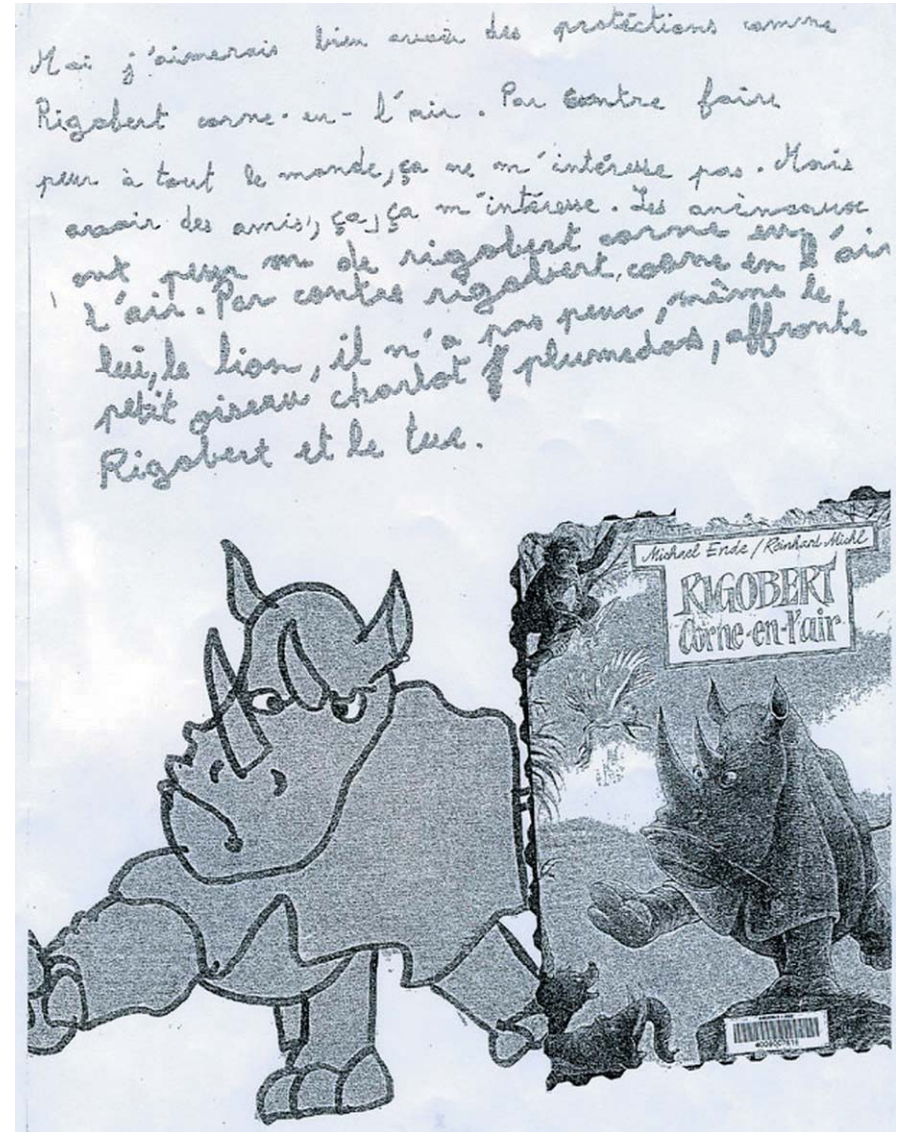 Moi j'aimerais bien avoir des protéctions comme
Rigobert corne-en-l'air. Par contre faire
peur à tout le monde, ça ne m'intéresse pas. Mais
avoir des amis, ça, ça m'intéresse. Les animeaux
ont peur de rigobert corne en
l'air. Par contre rigobert, corne en l'air
lui, le lion, il n'a pas peur, même le
petit oiseau charlot plumedos, affronte
Rigobert et le tue.
Michael Ende / Reinhard Michl
RIGOBERT
Corne-en-l'air